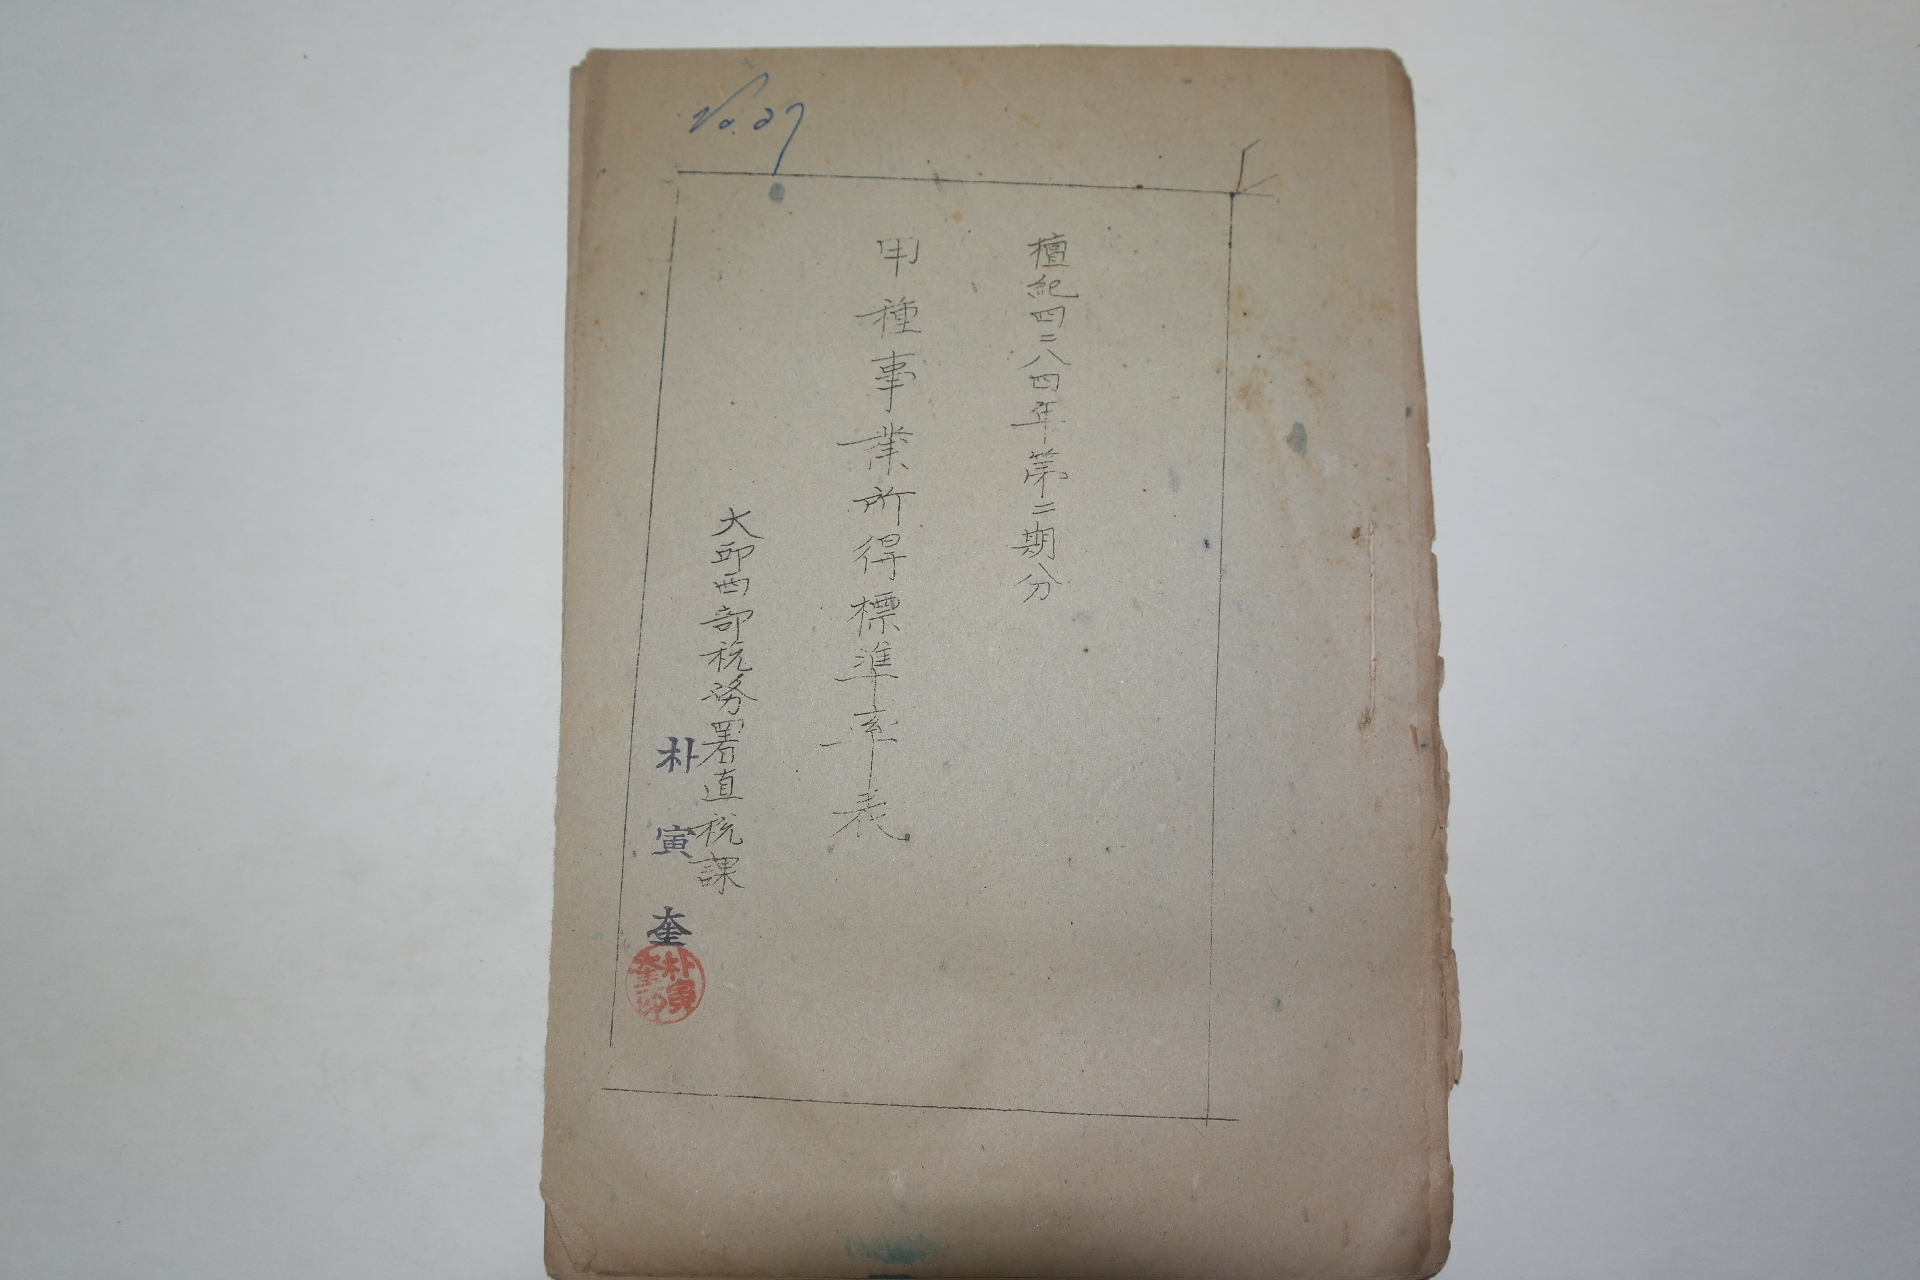 No. 27
檀紀四二八四年第二期分
甲種事業所得標準率表
大邱西部税務署直税課
朴寅奎
朴寅奎印